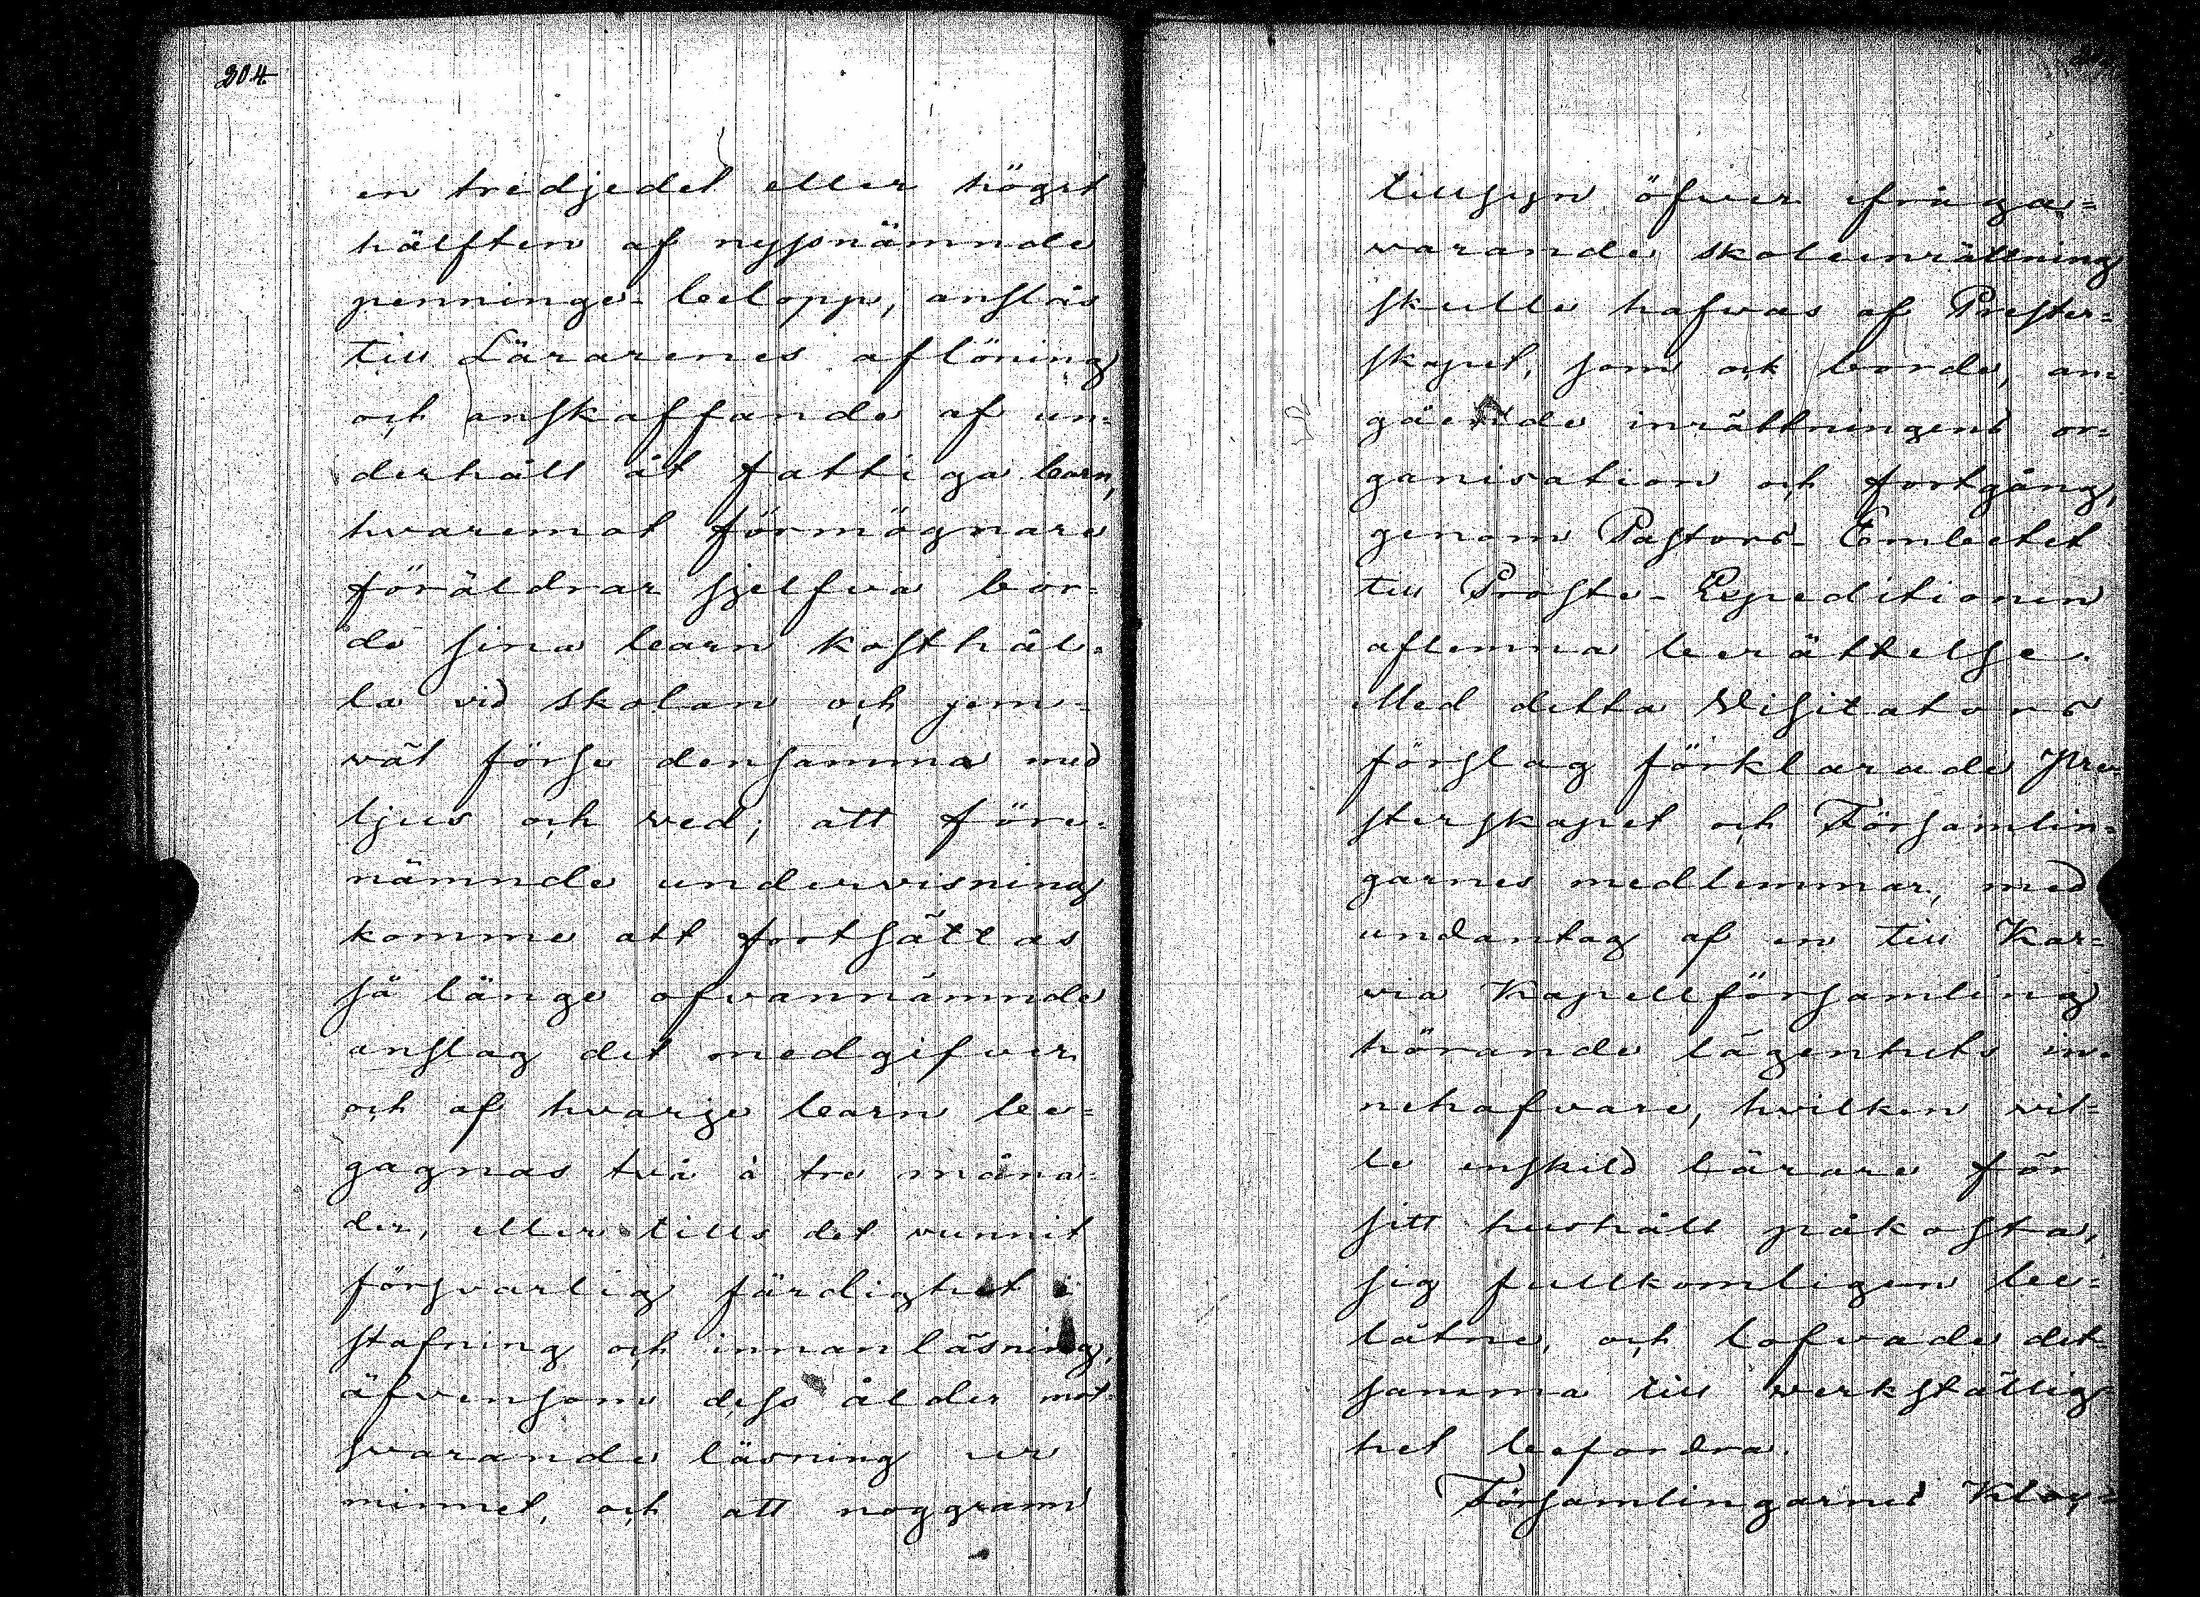 204
en tredjedel eller högst
hälften af nyssnämnde
penninge-belopp, anslås
till Lärarenes aflöning
och anskaffande af un=
derhåll åt fattiga barn,
hvaremot förmögnare
föräldrar sjelfva bor=
de sina barn kosthål=
la vid skolan och jem=
väl förse densamma med
ljus och ved; att före=
nämnde undervisning
komme att fortsättas
så länge ofvannämnde
anslag det medgifver
och af hvarje barn be=
gagnas två à tre måna=
der, eller tills det vunnit
försvarlig färdighet i
stafning och innanläsning,
äfvensom dess ålder mot=
svarande läsning ur
minnet, och att noggrann
tillsyn öfver ifråga=
varande skoleinrättning
skulle hafvas af Prester=
skapet, som ock borde, an=
gående inrättningens or=
ganisation och fortgång,
genom Pastors-Embetet
till Proste-Expeditionen
aflemna berättelse.
Med detta Visitators
förslag förklarade Pre=
sterskapet och Församlin=
garnes medlemmar, med
undantag af en till Kar=
via Kapellförsamling
hörande lägenhets in=
nehafvare, hvilken vil=
le enskild lärare för
sitt hushåll påkosta,
sig fullkomligen be=
låtne, och lofvade det=
samma till verkställig=
het befordra.
Församlingarnes Kloc=